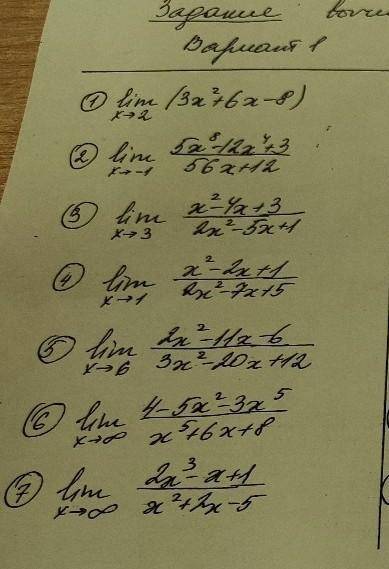 Задание
Вариант 1
① lim x→2 (3x²+6x-8)
② lim x→-1 (5x⁸-12x⁴+3)/(56x+12)
③ lim x→3 (x²-4x+3)/(2x²-5x+1)
④ lim x→1 (x²-2x+1)/(2x²-7x+5)
⑤ lim x→6 (2x²-11x-6)/(3x²-20x+12)
⑥ lim x→∞ (4-5x²-3x⁵)/(x⁵+6x+8)
⑦ lim x→∞ (2x³-x+1)/(x²+2x-5)